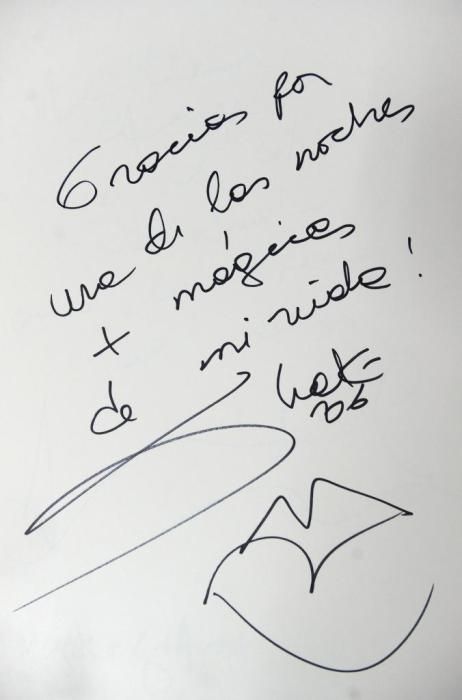 Gracias por
una de las noches
+ mágicas
de mi vida!